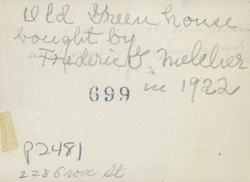 Old Green house
bought by
Frederic G. Melcher
699 in 1922
p2481
228 Grove St.